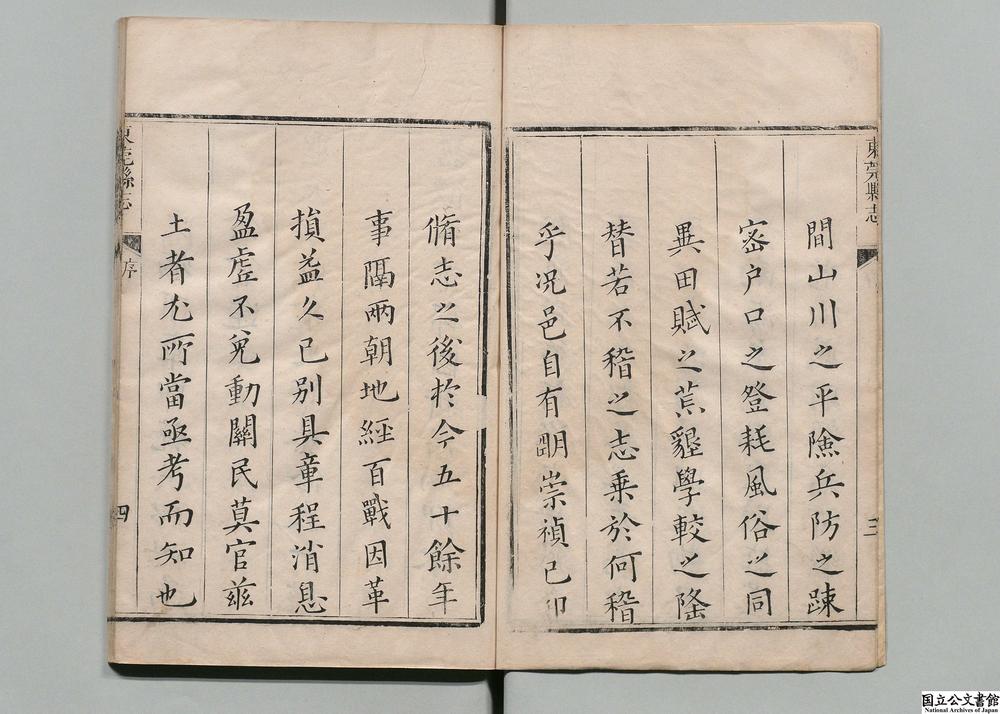 東莞縣志
三
間山川之平險兵防之踈
宻户口之登耗風俗之同
異田賦之荒墾學較之隆
替若不稽之志乗於何稽
乎况邑自有明崇禎已卯
脩志之後於今五十餘年
事隔兩朝地經百戰因革
損益久已别具章程消息
盈虚不免動關民莫官兹
土者尤所當亟考而知也
東莞縣志
序
四
国立公文書館
National Archives of Japan